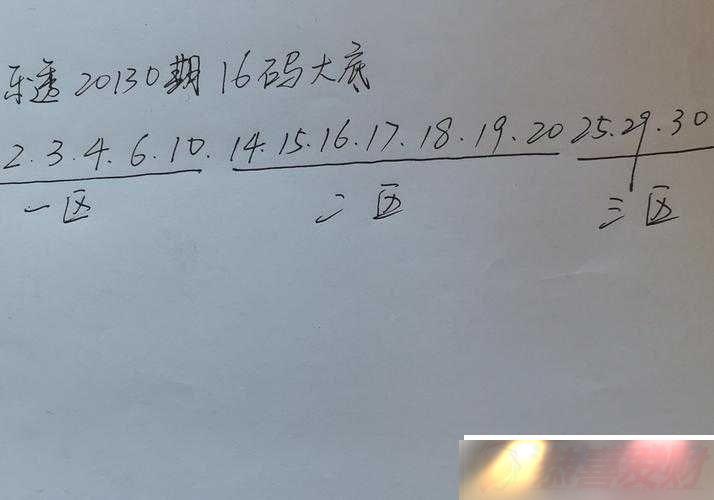 乐透20130期 16码大底
2.3.4.6.10. 14.15.16.17.18.19.20 25.29.30
一区 二区 三区
恭喜发财